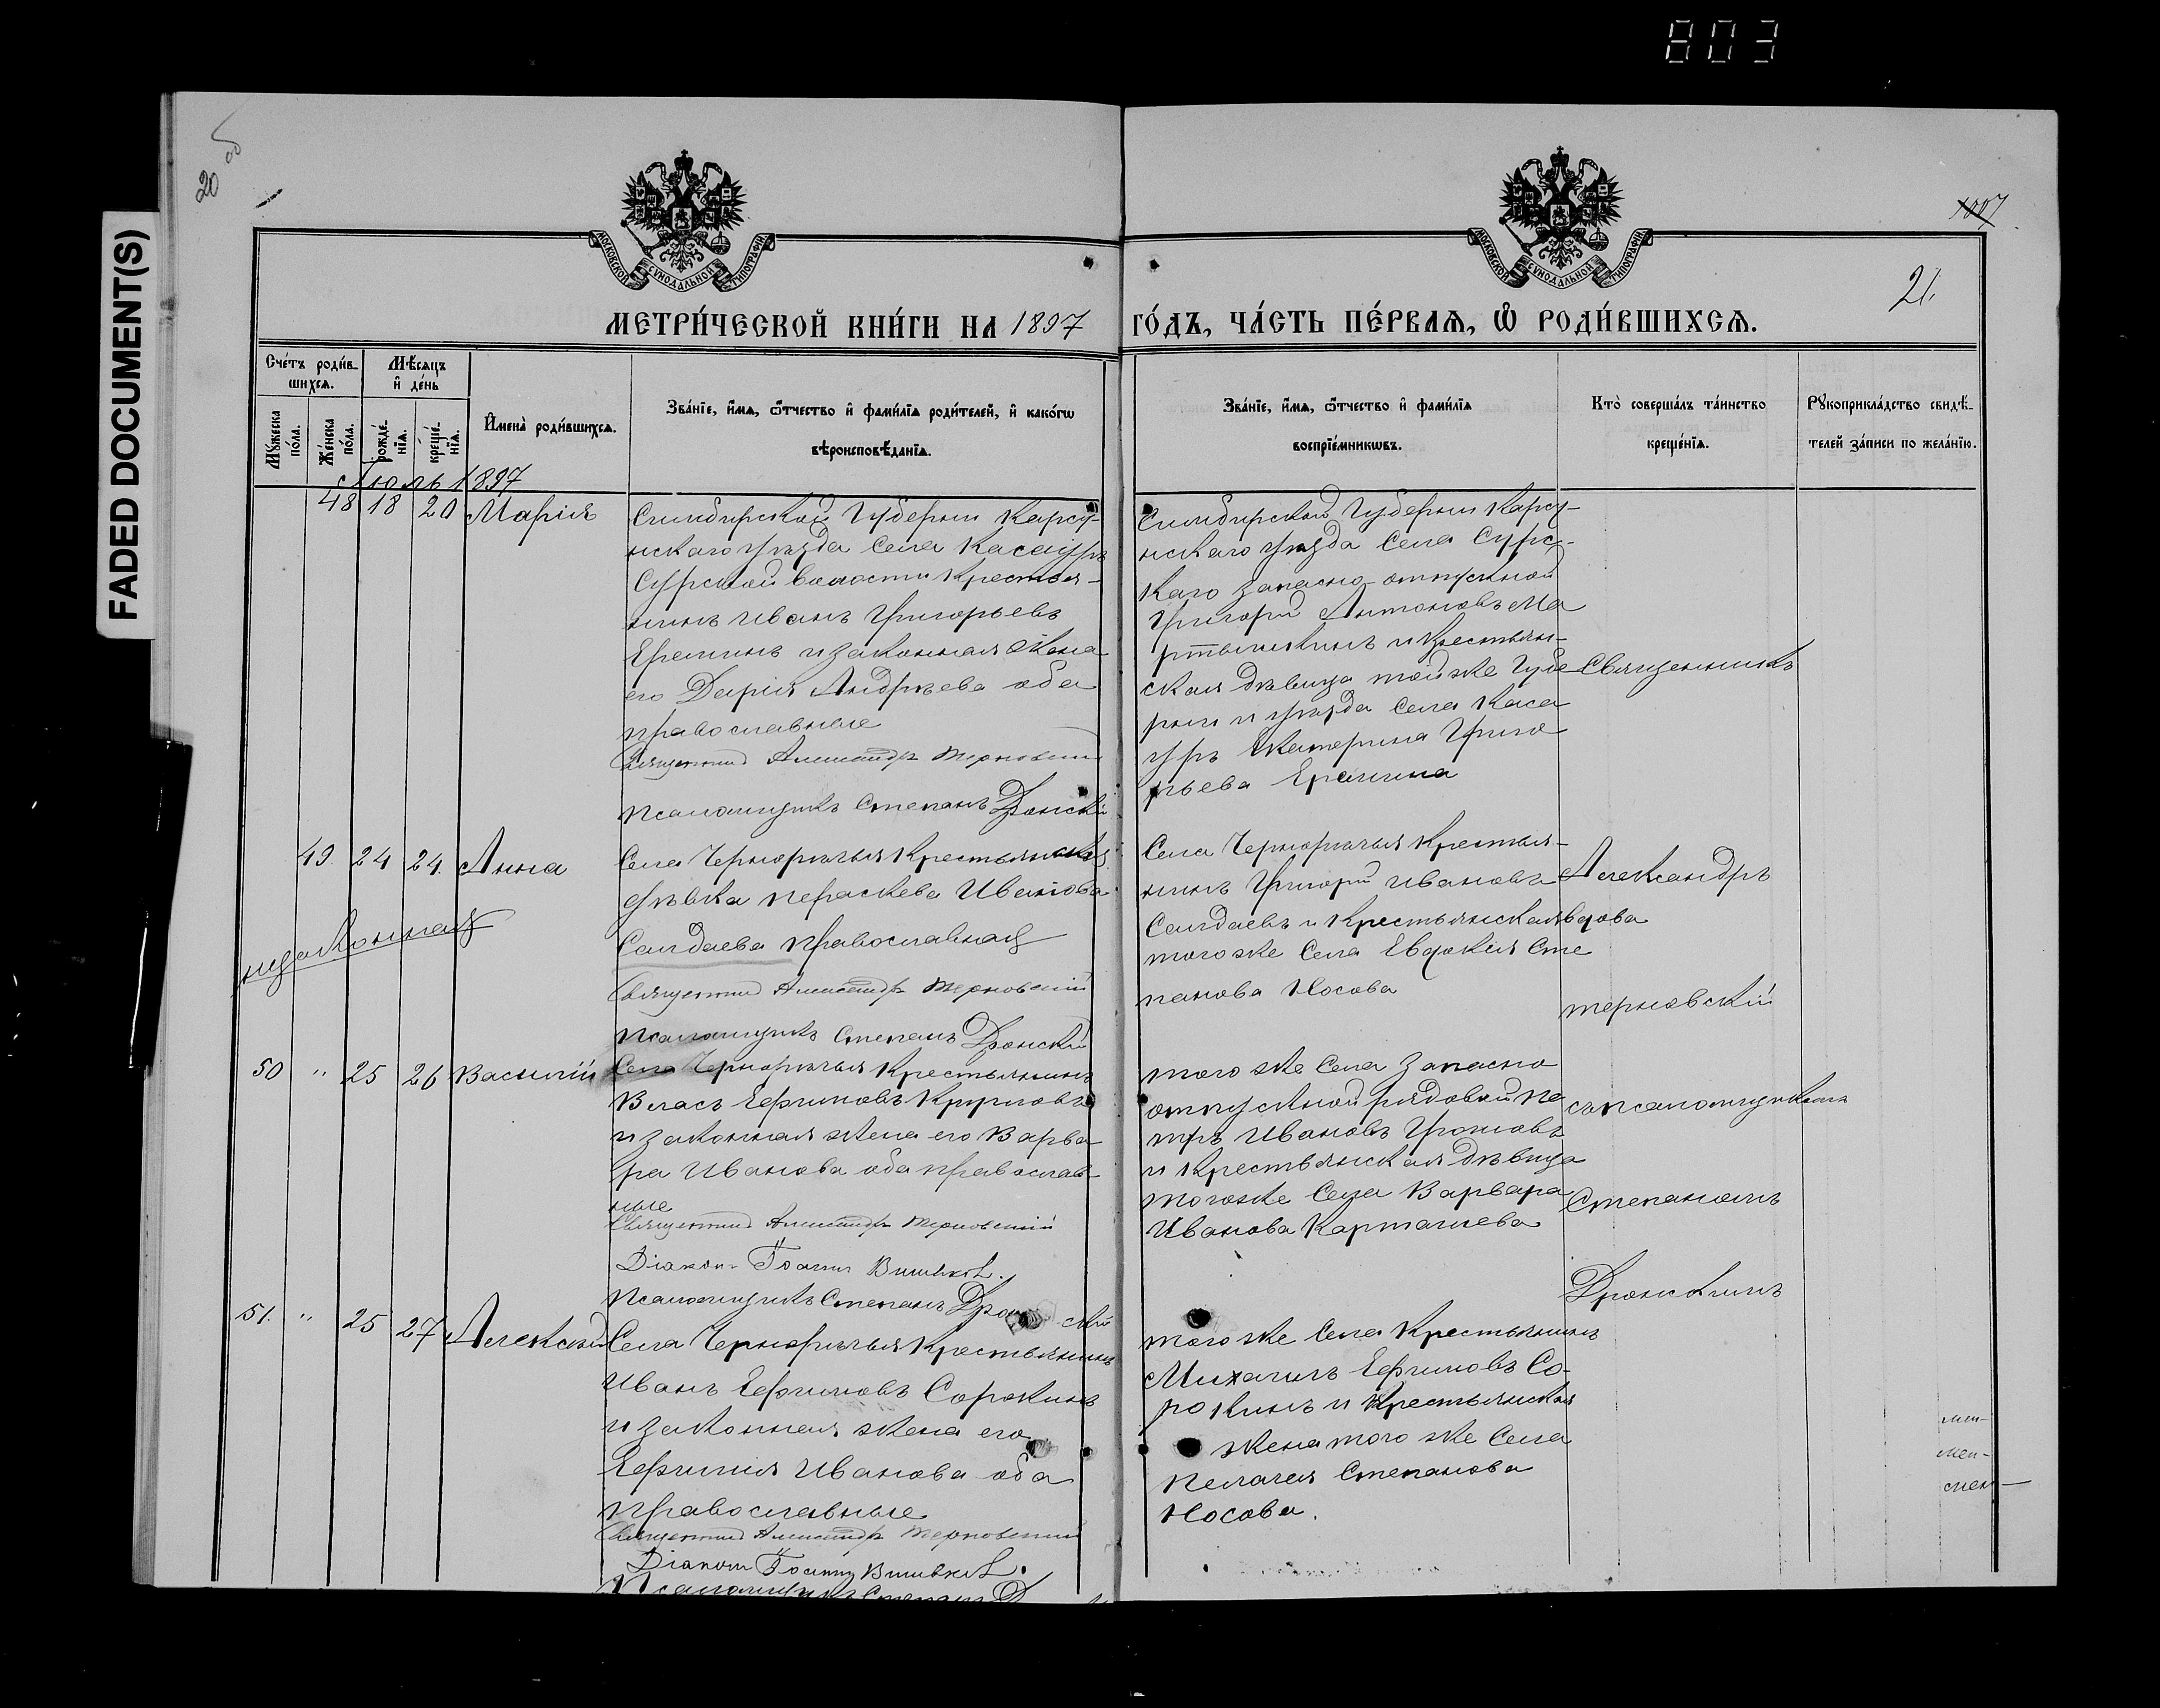 803
FADED DOCUMENT(S)
20 об
1897
21.
МОСКОВСКОЙ СѴНОДАЛЬНОЙ ТИПОГРАФІИ
МОСКОВСКОЙ СѴНОДАЛЬНОЙ ТИПОГРАФІИ
МЕТРИ́ЧЕСКОЙ КНИ́ГИ НА 1897
ГО́ДЪ, ЧА́СТЬ ПЕ́РВАѦ, Ѽ РОДИ́ВШИХСѦ.
Сче́тъ роди́в-
шихсѧ.
Мѣ́сѧцъ
и҆ де́нь
Мꙋ́жеска
по́ла.
Же́нска
по́ла.
рожде́-
нїѧ.
креще́-
нїѧ.
И҆мена̀ роди́вшихсѧ.
Зва́нїе, и҆́мѧ, ѻ҆́тчество и҆ фами́лїѧ роди́телей, и҆ како́гѡ
вѣроисповѣ́данїѧ.
Зва́нїе, и҆́мѧ, ѻ҆́тчество и҆ фами́лїѧ
воспрїе́мникѡвъ.
Кто̀ соверша́лъ та́инство
креще́нїѧ.
Рꙋкоприкла́дство свидѣ́-
телей за́писи по жела́нїю.
Іюль 1897
48 18 20 Марія
Симбирской Губерніи Карсу-
нскаго уѣзда села Касауръ
Сурской волости крестья-
нинъ Иванъ Григорьевъ
Еремин и законная жена
его Дарія Андрѣева оба
православные
Священникъ Александръ Терновскій
Псаломщикъ Степанъ Дронскій
Симбирской Губерніи Карсу-
нскаго уѣзда села Сурс-
каго запасно-отпускной
Григорій Антоновъ Ма
ртышкинъ и крестьян-
ская дѣвица той же Губе
рніи и уѣзда села Каса
уръ Екатерина Григо
рьева Еремина
Священникъ
49. 24 24. Анна
незаконная
Села Чернорѣчья крестьянская
дѣвка Параскева Иванова
Салдаева православная
Священникъ Александръ Терновскій
Псаломщикъ Степанъ Дронскій
Села Чернорѣчья крестья-
нинъ Григорій Ивановъ
Салдаевъ и крестьянская вдова
того же села Евдокия Сте
панова Носова
Александръ
Терновскій
50 " 25 26 Василій
Села Чернорѣчья крестьянинъ
Власъ Ефимовъ
и законная жена его Варва
ра Иванова оба православ
ные
Священникъ Александръ Терновскій
Діаконъ Іоаннъ
Псаломщикъ Степанъ Дронскій
того же села запасно
отпускной рядовой Пе
тръ Ивановъ
и крестьянская дѣвица
того же села Варвара
Иванова Карташева
съ псаломщикомъ
Степаномъ
Дронскимъ
51. " 25 27 Алексѣй
Села Чернорѣчья крестьянинъ
Иванъ Ефимовъ Сорокинъ
и законная жена его
Ефимия Иванова оба
православные
Священникъ Александръ Терновскій
Діаконъ Іоаннъ
Псаломщикъ Степанъ
того же села крестьянинъ
Михаилъ Ефимовъ Со-
рокинъ и крестьянская
жена того же села
Пелагея Степанова
Носова.